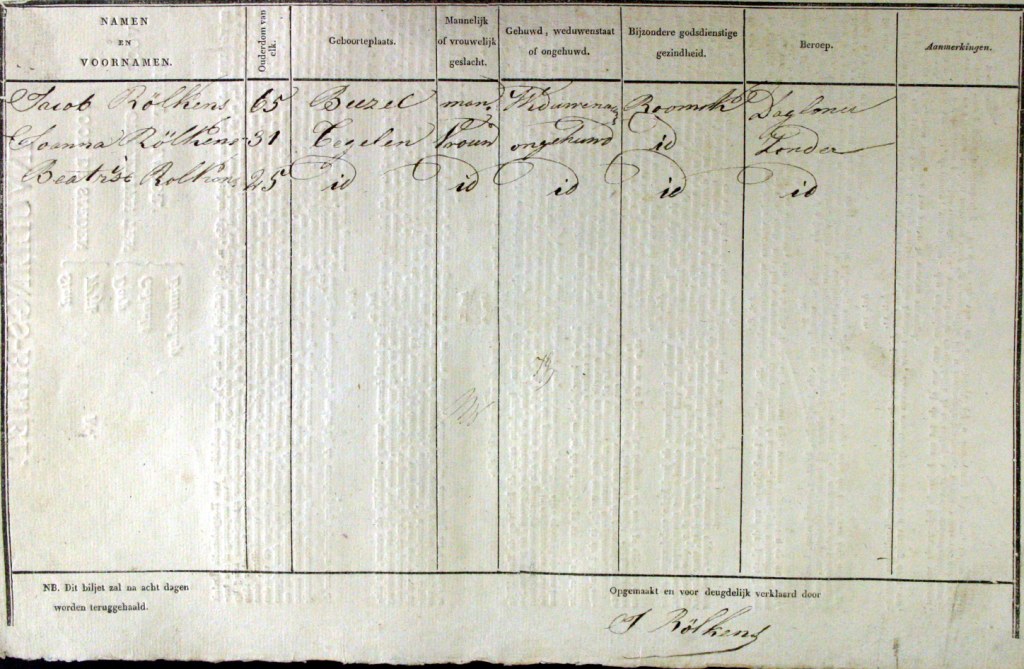 NAMEN EN VOORNAMEN. Ouderdom van elk. Geboorteplaats. Mannelijk of vrouwelijk geslacht. Gehuwd, weduwenstaat of ongehuwd. Bijzondere godsdienstige gezindheid. Beroep. Aanmerkingen.
Jacob Rölkens 65 Beezel man Weduwenaar Roomsch Dagloner
Joanna Rölkens 31 Tegelen Vrouw ongehuwd id Zonder
Beatrise Rolkens 25 id id id id id
NB. Dit biljet zal na acht dagen
worden teruggehaald.
Opgemaakt en voor deugdelijk verklaard door
J Rölkens